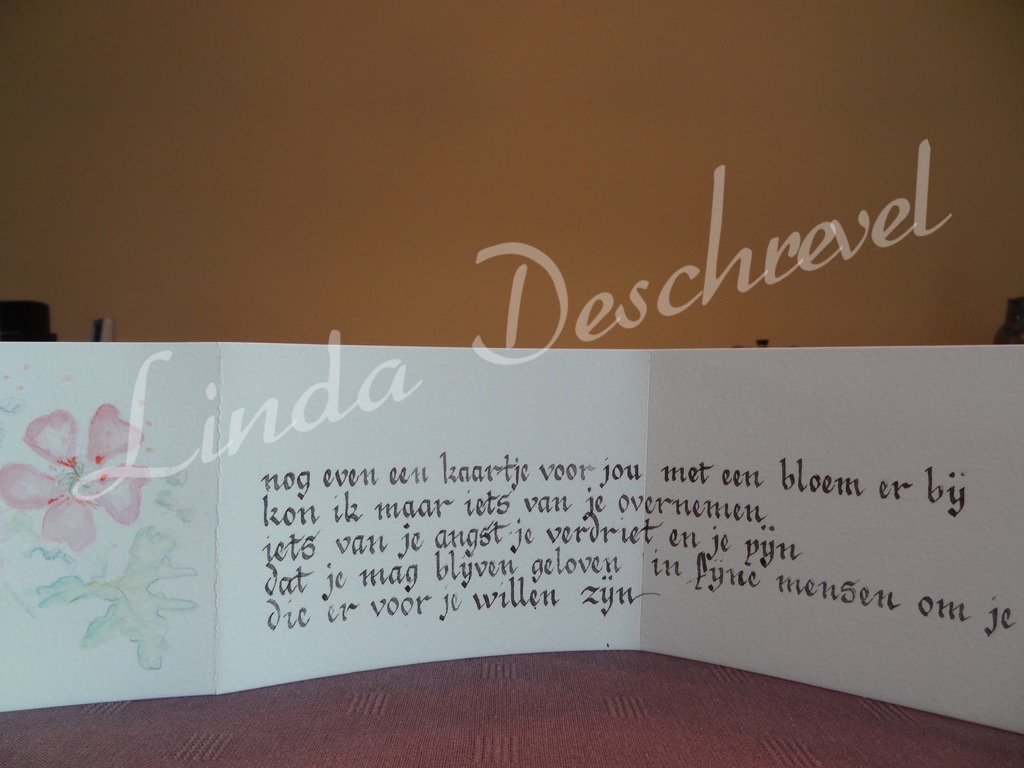 Linda Deschrevel
nog even een kaartje voor jou met een bloem er bij
kon ik maar iets van je overnemen
iets van je angst je verdriet en je pijn
dat je mag blijven geloven in fijne mensen om je
die er voor je willen zijn